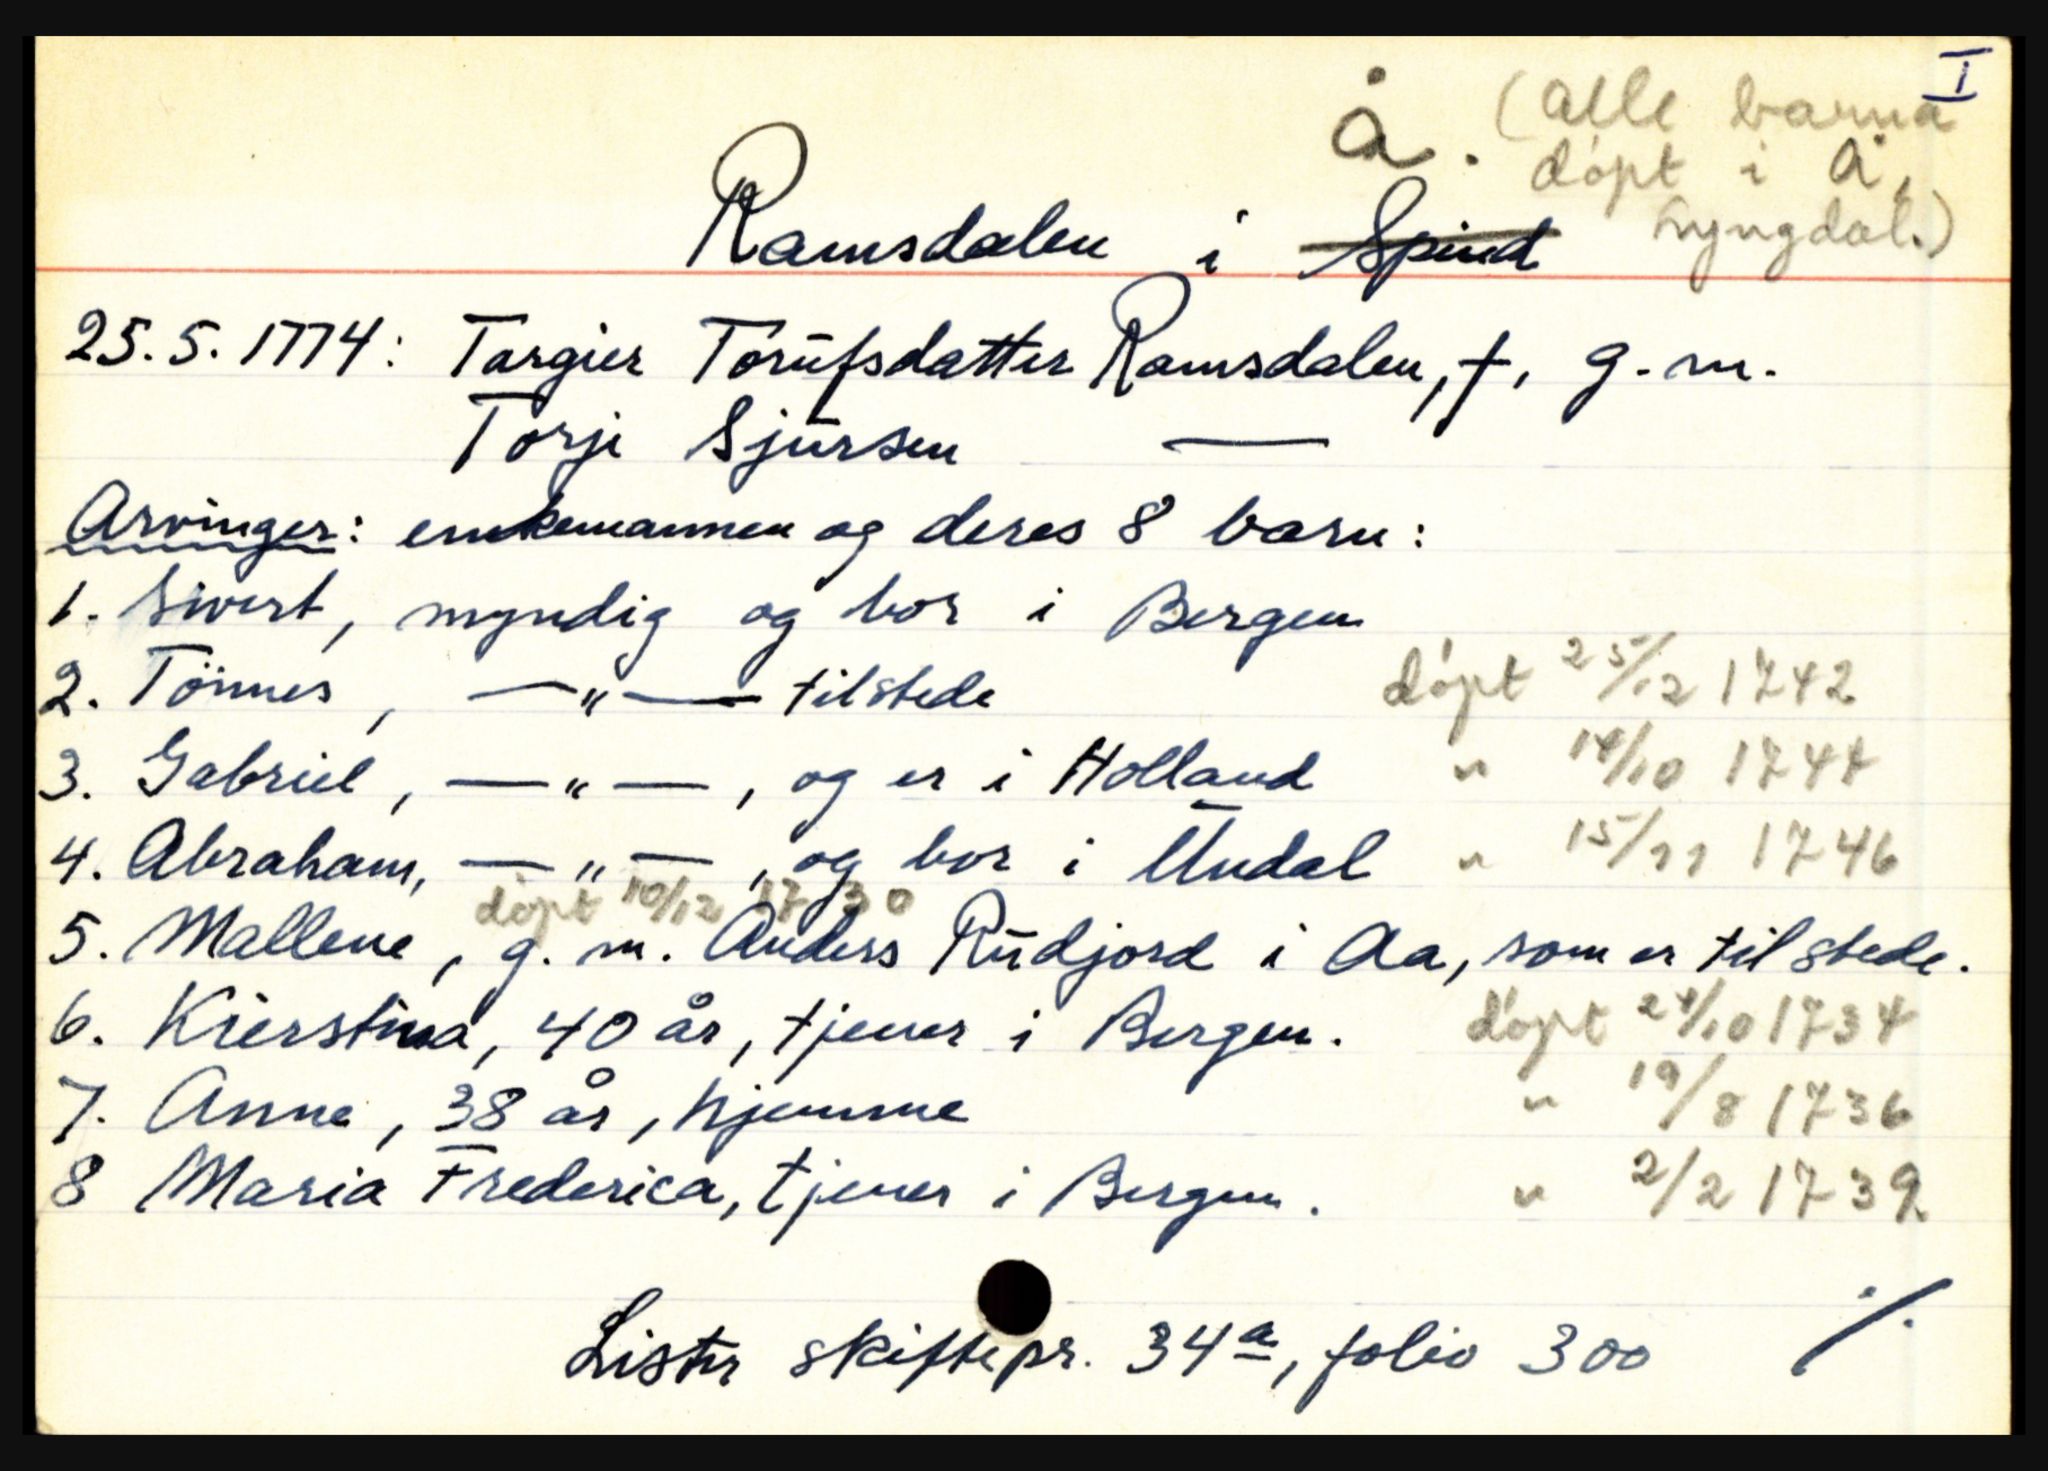 I
Å. (alle barna
døpt i Å,
Lyngdal.)
Ramsdalen i Spind
25.5.1774: Targier Torufsdatter Ramsdalen, †, g.m.
Torje Sjursen —
Arvinger: enkemannen og deres 8 barn:
1. Sivert, myndig og bor i Bergen
2. Tönnes, —"— tilstede døpt 25/12 1742
3. Gabriel, —"—, og er i Holland " 14/10 1744
4. Abraham, —"—, og bor i Undal " 15/11 1746
døpt 10/12 1730
5. Mallene, g.m. Anders Rudjord i Aa, som er tilstede.
6. Kierstina, 40 år, tjener i Bergen. døpt 24/10 1734
7. Anne, 38 år, hjemme " 19/8 1736
8 Maria Frederica, tjener i Bergen. " 2/2 1739
Lister skiftepr. 34a, folio 300 ./.